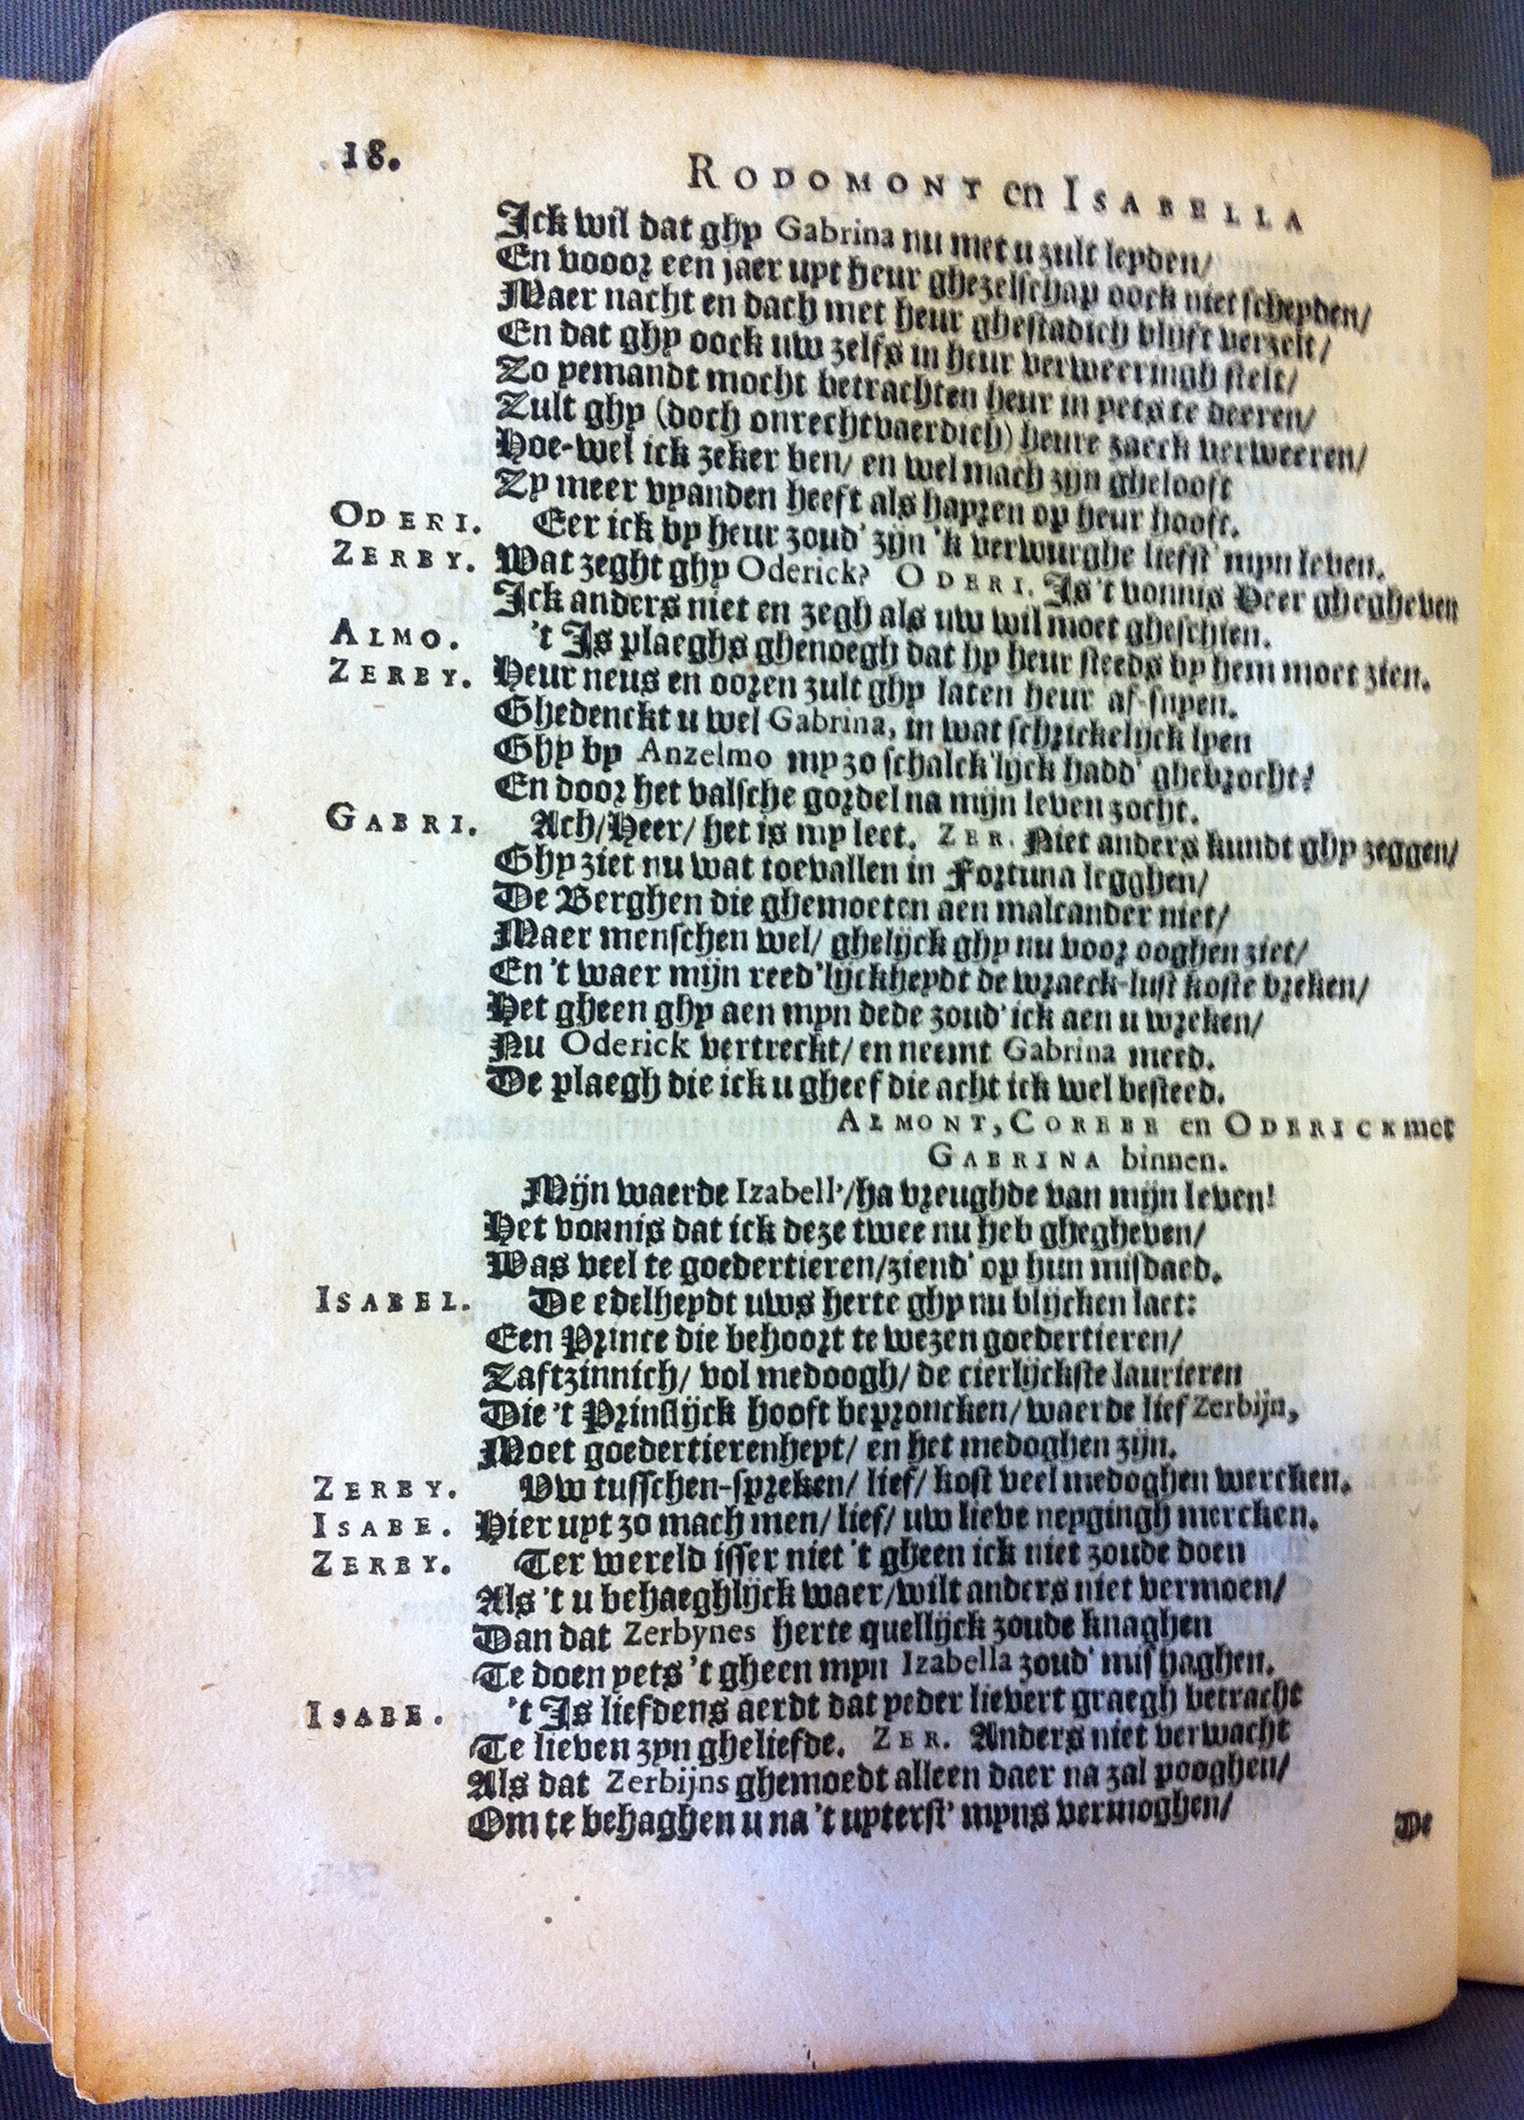 18.
RODOMONT en ISABELLA
Ick wil dat ghy Gabrina nu met u zult leyden/
En vooor een jaer uyt heur ghezelschap oock niet scheyden/
Maer nacht en dach met heur ghestadich blijft verzelt/
En dat ghy oock uw zelfs in heur verweeringh stelt/
Zo yemandt mocht betrachten heur in yets te deeren/
Zult ghy (doch onrechtvaerdich) heure zaeck verweeren/
Hoe-wel ick zeker ben/ en wel mach zijn ghelooft
Zy meer vyanden heeft als hayren op heur hooft.
ODERI. Eer ick by heur zoud' zijn 'k verwurghe liefst' myn leven.
ZERBY. Wat zeght ghy Oderick? ODERI. Is 't vonnis Heer ghegheven
Ick anders niet en zegh als uw wil moet gheschien.
ALMO. 't Is plaeghs ghenoegh dat hy heur steeds by hem moet zien.
ZERBY. Heur neus en ooren zult ghy laten heur af-snyen.
Ghedenckt u wel Gabrina, in wat schrickelijck lyen
Ghy by Anzelmo my zo schalck'lijck hadd' ghebrocht?
En door het valsche gordel na mijn leven zocht.
GABRI. Ach/Heer/ het is my leet. ZER. Niet anders kundt ghy zeggen/
Ghy ziet nu wat toevallen in Fortuna legghen/
De Berghen die ghemoeten aen malcander niet/
Maer menschen wel/ ghelijck ghy nu voor ooghen ziet/
En 't waer mijn reed'lijckheydt de wraeck-lust koste breken/
Het gheen ghy aen myn dede zoud' ick aen u wreken/
Nu Oderick vertreckt/ en neemt Gabrina meed.
De plaegh die ick u gheef die acht ick wel besteed.
ALMONT, COREBE en ODERICK met
GABRINA binnen.
Mijn waerde Izabell'/ha vreughde van mijn leven!
Het vonnis dat ick deze twee nu heb ghegheven/
Was veel te goedertieren/ziend' op hun misdaed.
ISABEL. De edelheydt uws herte ghy nu blijcken laet:
Een Prince die behoort te wezen goedertieren/
Zaftzinnich/ vol medoogh/ de cierlijckste laurieren
Die 't Prinslijck hooft beproncken/ waerde lief Zerbijn,
Moet goedertierenheyt/ en het medoghen zijn.
ZERBY. Uw tusschen-spreken/ lief/ kost veel medoghen wercken.
ISABE. Hier uyt zo mach men/ lief/ uw lieve neygingh mercken.
ZERBY. Ter wereld isser niet 't gheen ick niet zoude doen
Als 't u behaeghlijck waer/wilt anders niet vermoen/
Dan dat Zerbynes herte quellijck zoude knaghen
Te doen yets 't gheen myn Izabella zoud' mishaghen.
ISABE. 't Is liefdens aerdt dat yeder lievert graegh betracht
Te lieven zyn gheliefde. ZER. Anders niet verwacht
Als dat Zerbijns ghemoedt alleen daer na zal pooghen/
Om te behaghen u na 't uyterst' myns vermoghen/
De